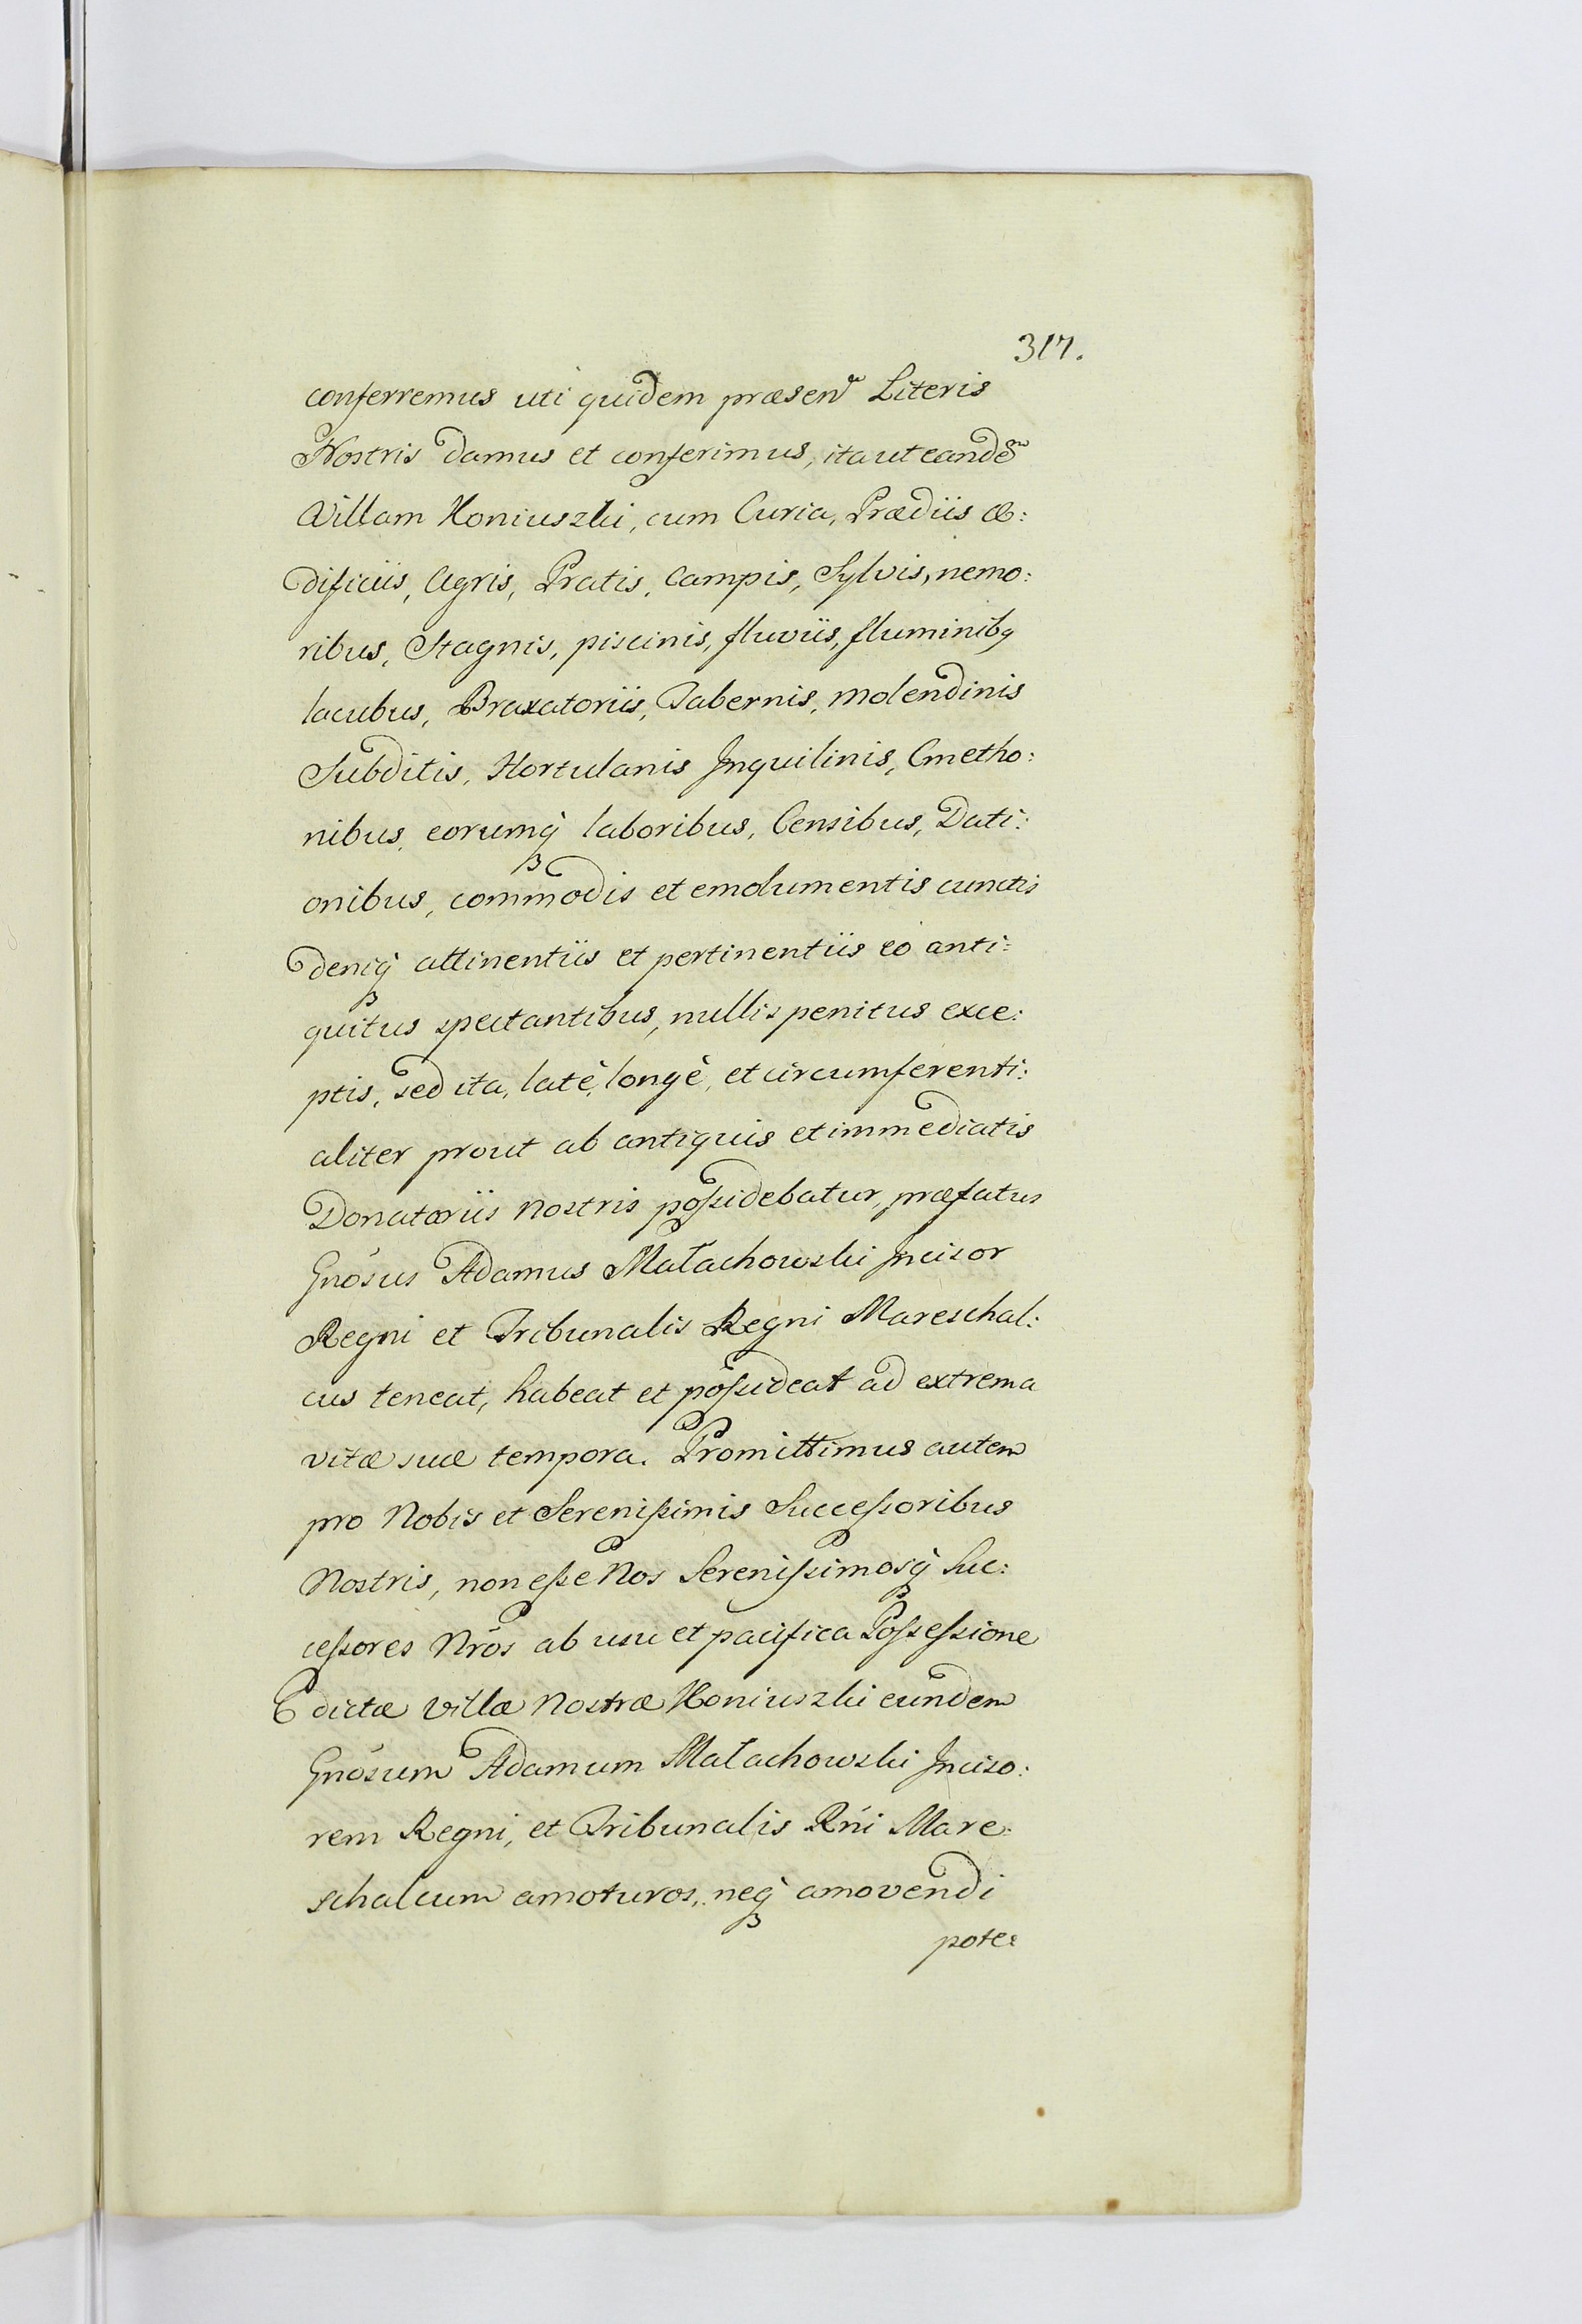 317.
conferremus uti quidem præsen͠ Literis
Nostris damus et conferimus, ita ut eandē
Villam Koniuszki, cum Curia, Prædiis æ:
dificiis, Agris, Pratis, Campis, Sylvis, nemo:
ribus, Stagnis, piscinis, fluviis, fluminibq
lacubus, Braxatoriis, Tabernis, molendinis
Subditis, Hortulanis Inquilinis, Cmetho:
nibus, eorumq̀ laboribus, Censibus, Dati:
onibus, commodis et emolumentis cunctis
deniq̀ attinentiis et pertinentiis eò anti:
quitus spectantibus, nullis penitus exce:
ptis, sed ita, latè, longè, et circumferenti:
aliter prout ab antiquis et immediatis
Donatoriis nostris poſsidebatur, præfatus
Gnósus Adamus Małachowski Incisor
Regni et Tribunalis Regni Mareschal:
cus teneat, habeat et poſsideat ad extrema
vitæ suæ tempora. Promittimus autem
pro Nobis et Sereniſsimis Succeſsoribus
Nostris, non eſse Nos Sereniſsimosq̀ Suc:
ceſsores Nrós ab usu et pacifica Poſseſsione
dictæ Villæ Nostræ Koniuszki eundem
Gnósum Adamum Małachowski Inciso:
rem Regni, et Tribunalis Rńi Mare:
schalcum amoturos, neq̀ amovendi
pote: